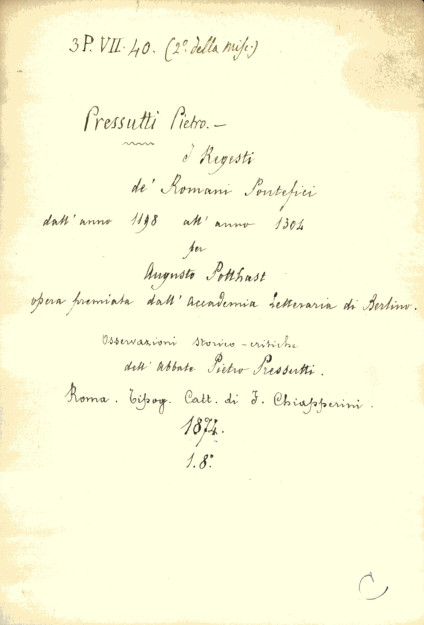 3 P. VII. 40. (2º. della misc.)
Pressutti Pietro. —
I Regesti
de' Romani Pontefici
dall' anno 1198 all' anno 1304
per
Augusto Potthast
opera premiata dall' Accademia Letteraria di Berlino.
Osservazioni storico-critiche
dell' Abbate Pietro Pressutti.
Roma. Tipog. Catt. di F. Chiapperini.
1874.
1. 8º.
C